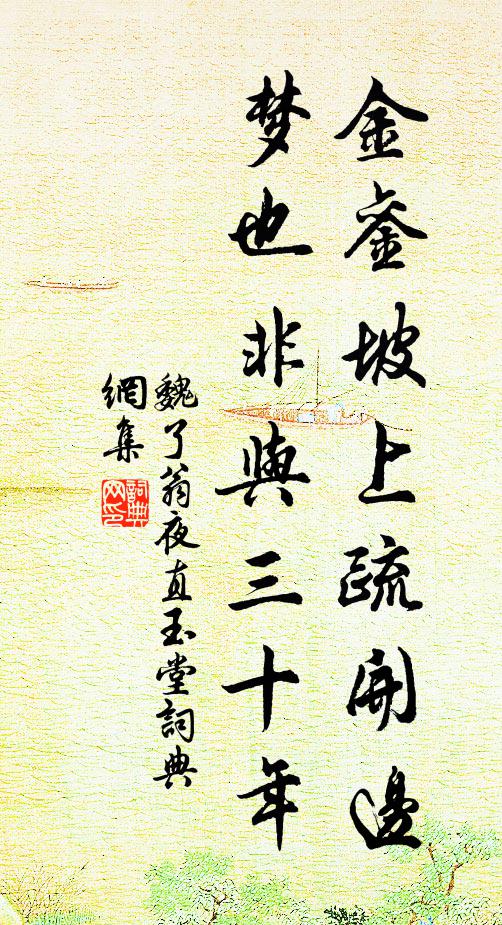 金銮坡上疏開邊
梦也非與三十年
魏了翁夜直玉堂詞典
網集
詞典
网印